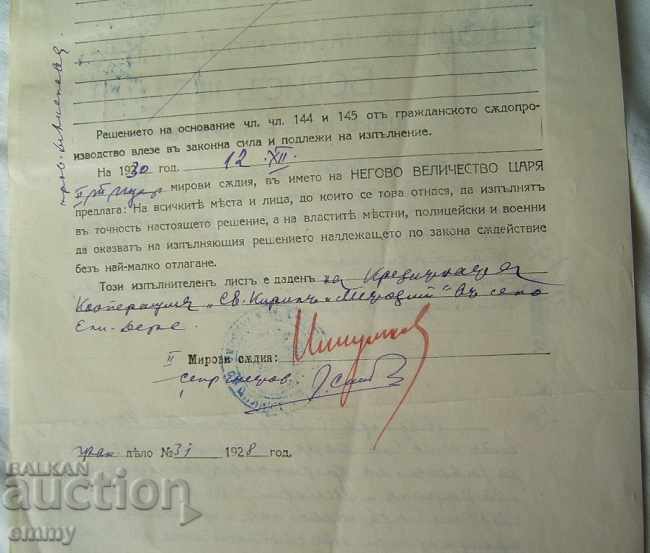 Решението на основание чл. чл. 144 и 145 отъ гражданското сѫдопро-
изводство влезе въ законна сила и подлежи на изпълнение.
На 1930 год. 12 . XII.
мирови сѫдия, въ името на НЕГОВО ВЕЛИЧЕСТВО ЦАРЯ
предлага: На всичкитѣ мѣста и лица, до които се това отнася, да изпълнятъ
въ точность настоящето решение, а на властитѣ мѣстни, полицейски и военни
да оказватъ на изпълняющия решението надлежащето по закона сѫдействие
безъ най-малко отлагане.
Този изпълнителенъ листъ е даденъ на Кредитната
Кооперация „Св. Кирилъ и Методий" въ село
Ели-Дере.
II Мирови сѫдия:
дѣло № 31 1928 год.
BALKAN
auction
emmy